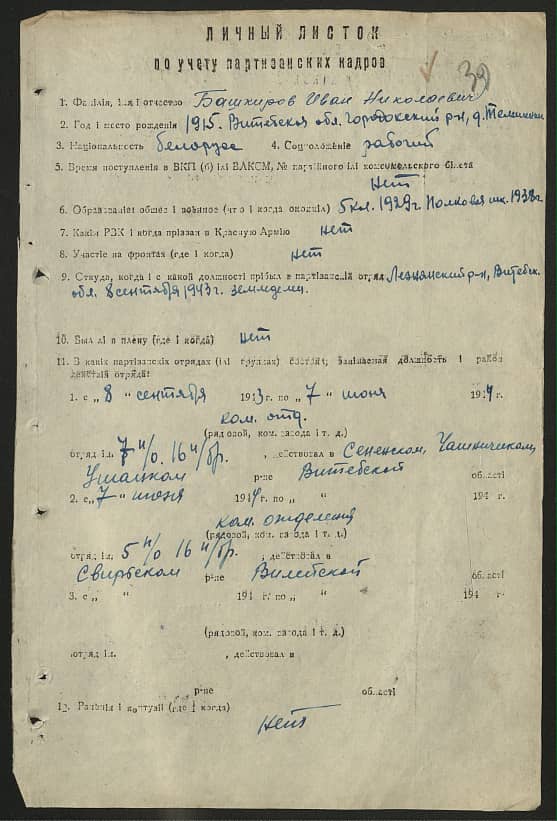 ЛИЧНЫЙ ЛИСТОК
по учету партизанских кадров
39
1. Фамілія, імя і отчество Башкиров Иван Николаевич
2. Год і место рождения 1915. Витебская обл. Городокский р-н, д.
3. Національность белорус 4. Соцположение рабочий
5. Время поступления в ВКП (б) ілі ВЛКСМ, № партійного ілі комсомольского білета
Нет
6. Образованіе: общее і военное (что і когда окончіл) 5 кл. 1929 г. Полковая шк. 1938 г.
7. Какім РВК і когда прізван в Красную Армію нет
8. Участіе на фронтах (где і когда) нет
9. Откуда, когда і с какой должності прібыл в партізанскій отряд Лезнянский р-н, Витебск.
обл. 8 сентября 1943 г. земледелия.
10. Был лі в плену (где і когда) нет
11. В какіх партізанскіх отрядах (ілі группах) состоял, занімаемая должность і район
действій отряда:
1. с „ 8 “ сентября 1943 г. по „ 7 “ июня 1944 г.
ком. отд.
(рядовой, ком. взвода і т. д.)
отряд ім. 7 п/о. 16 п/бр. , действовал в Сененском, Чашничиком,
Ушацком р-не Витебской області
2. с „ 7 “ июня 1944 г. по „ “ 194 г.
ком. отделения
(рядовой, ком. взвода і т. д.)
отряд ім. 5 п/о 16 п/бр. , действовал в
Свирьском р-не Вилейской області
3. с „ “ 194 г. по „ “ 194 г.
(рядовой, ком. взвода і т. д.)
отряд ім. , действовал в
р-не області
12. Раненія і контузіі (где і когда)
Нет